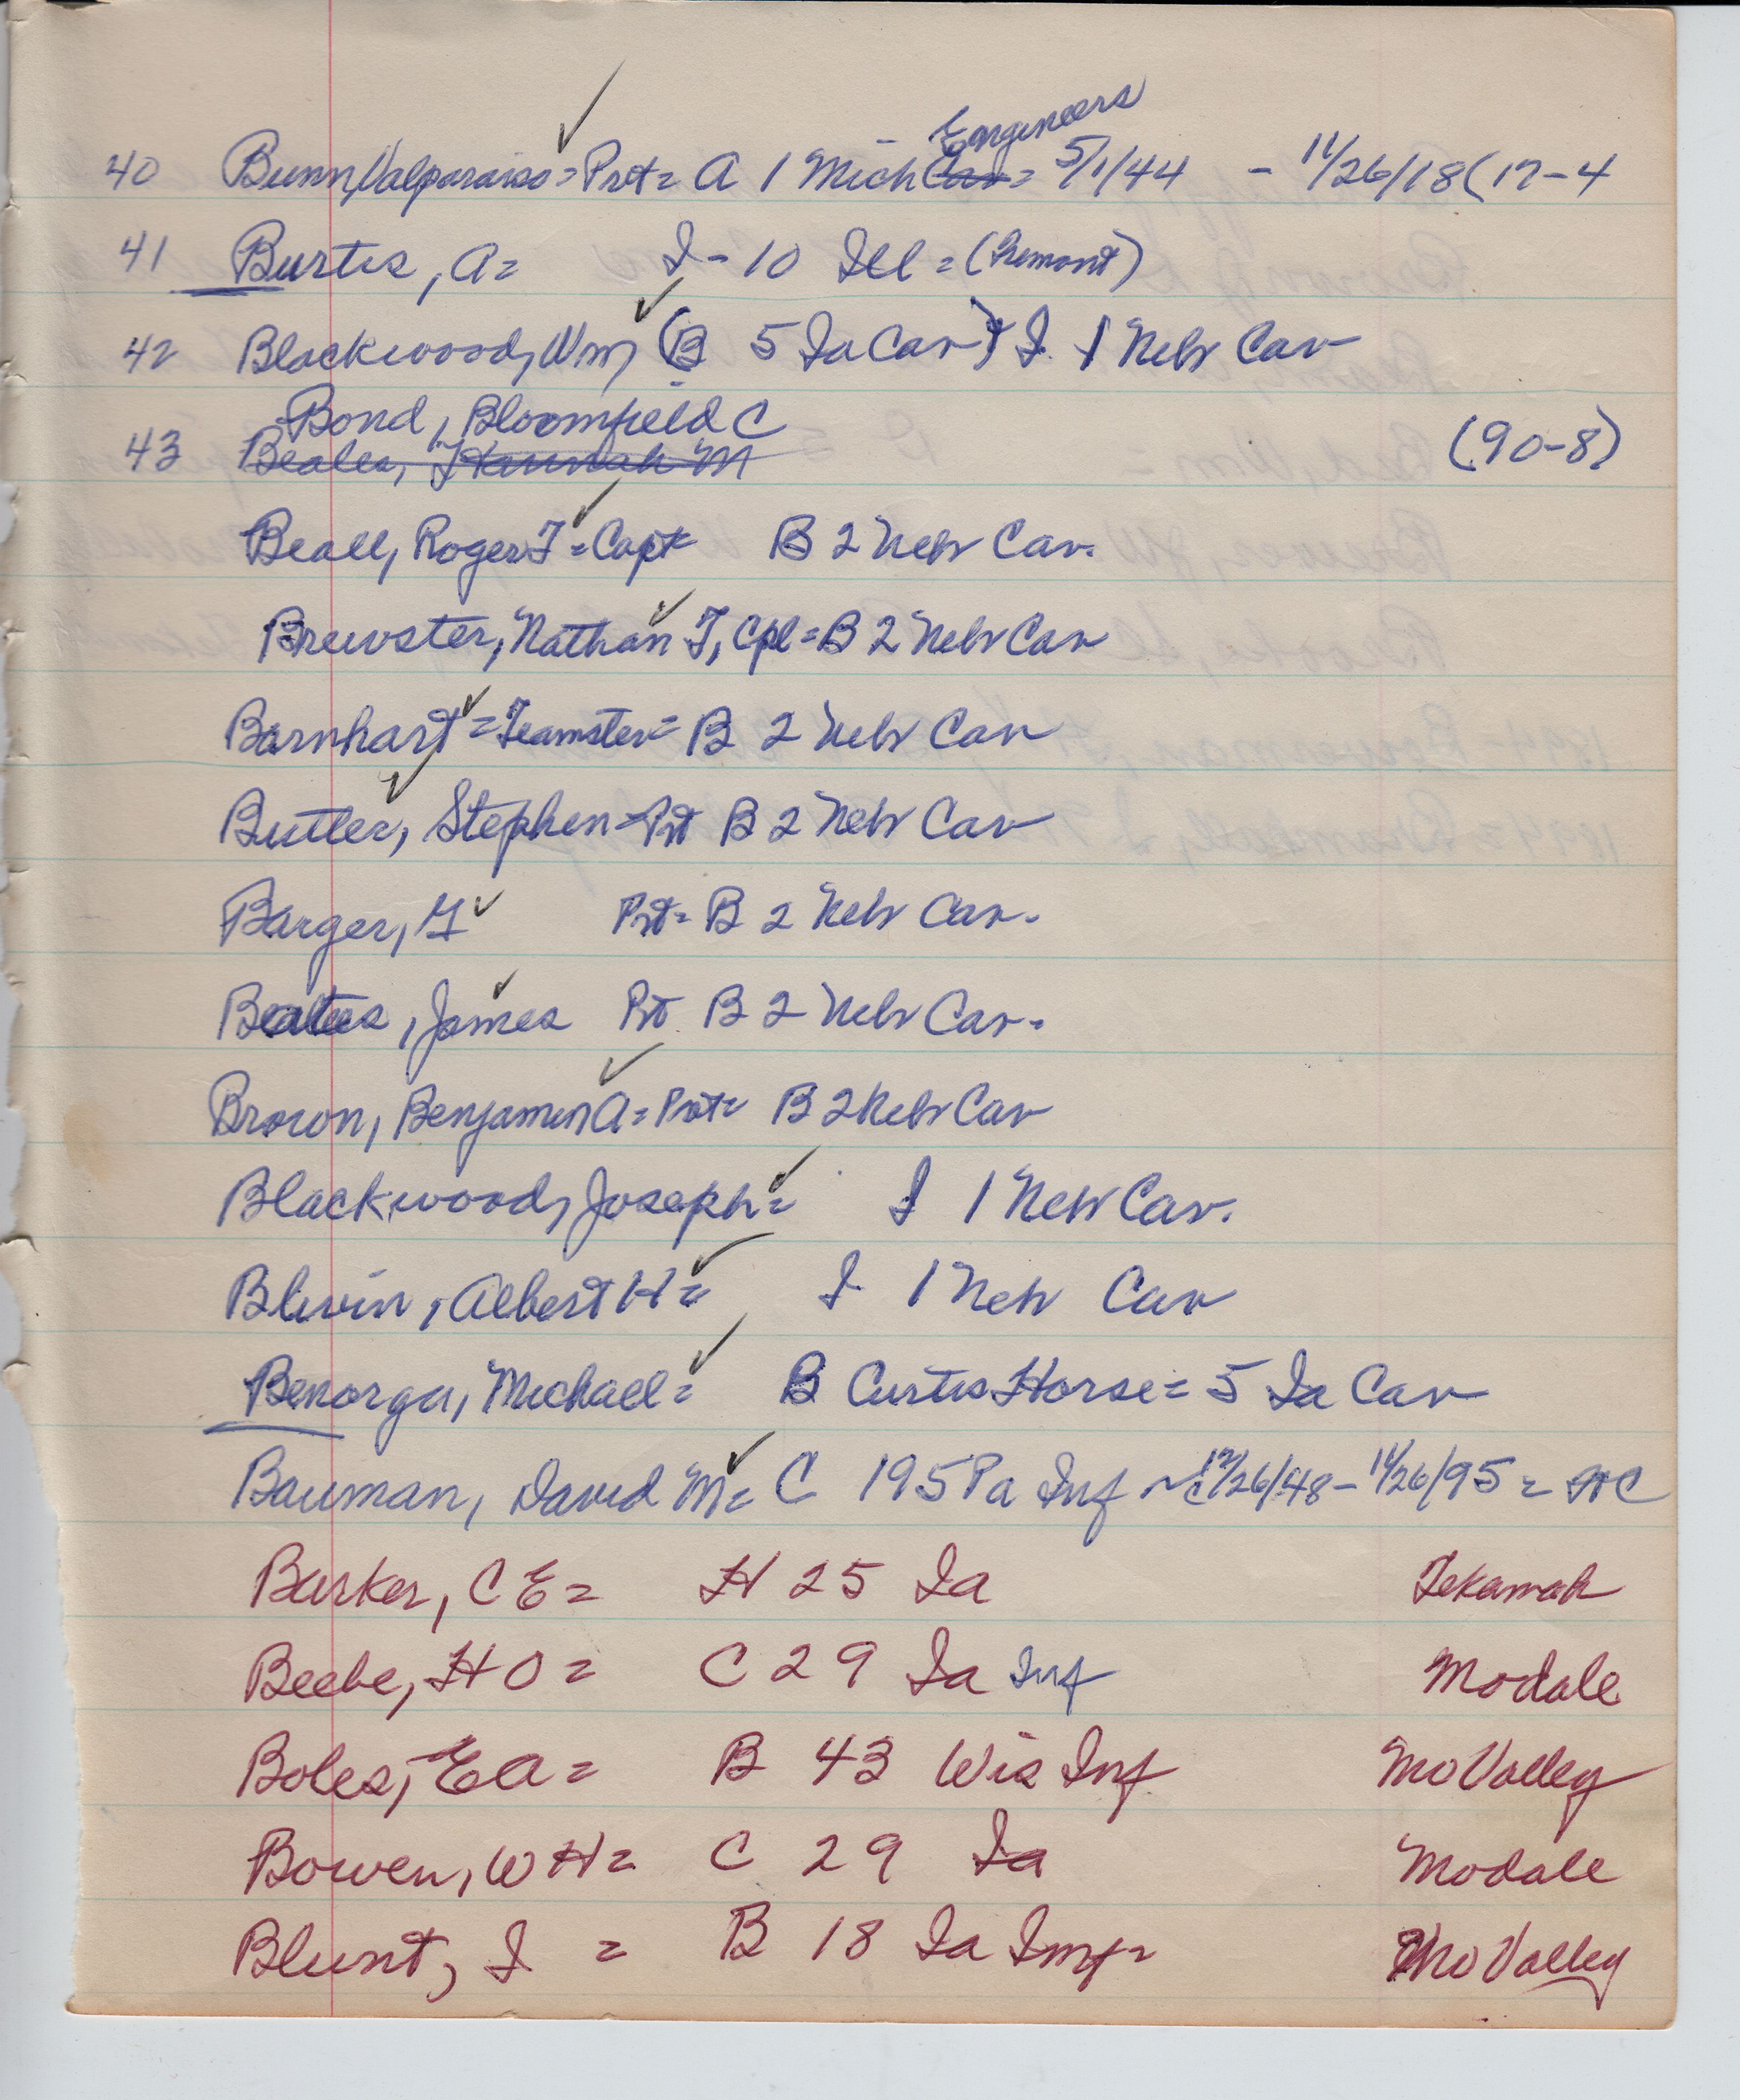 Engineers
40 Bunn, Valparaiso = Pvt = A 1 Mich Cav = 5/1/44 - 11/26/18 (17-4
41 Burtis, A = I - 10 Ill = (Fremont)
42 Blackwood, Wm (B 5 Ia Cav) I 1 Nebr Cav
Bond, Bloomfield C
43 Beales, Hannah M (90-8)
Beall, Roger T = Capt B 2 Nebr Cav.
Brewster, Nathan T, Cpl = B 2 Nebr Cav
Barnhart = Teamster = B 2 Nebr Cav
Butler, Stephen = Pvt B 2 Nebr Cav
Barger, G Pvt = B 2 Nebr Cav.
James Pvt B 2 Nebr Cav.
Brown, Benjamin A = Pvt = B 2 Nebr Cav
Blackwood, Joseph = I 1 Nebr Cav.
Blivin, Albert H = I 1 Nebr Cav
Benorga, Michael = B Curtis Horse = 5 Ia Cav
Bauman, David M = C 195 Pa Inf 12/26/48 - 11/26/95 =
Barker, C E = H 25 Ia Tekamah
Beebe, H O = C 29 Ia Inf Modale
Boles, E A = B 43 Wis Inf Mo Valley
Bowen, W H = C 29 Ia Modale
Blunt, I = B 18 Ia Inf = Mo Valley